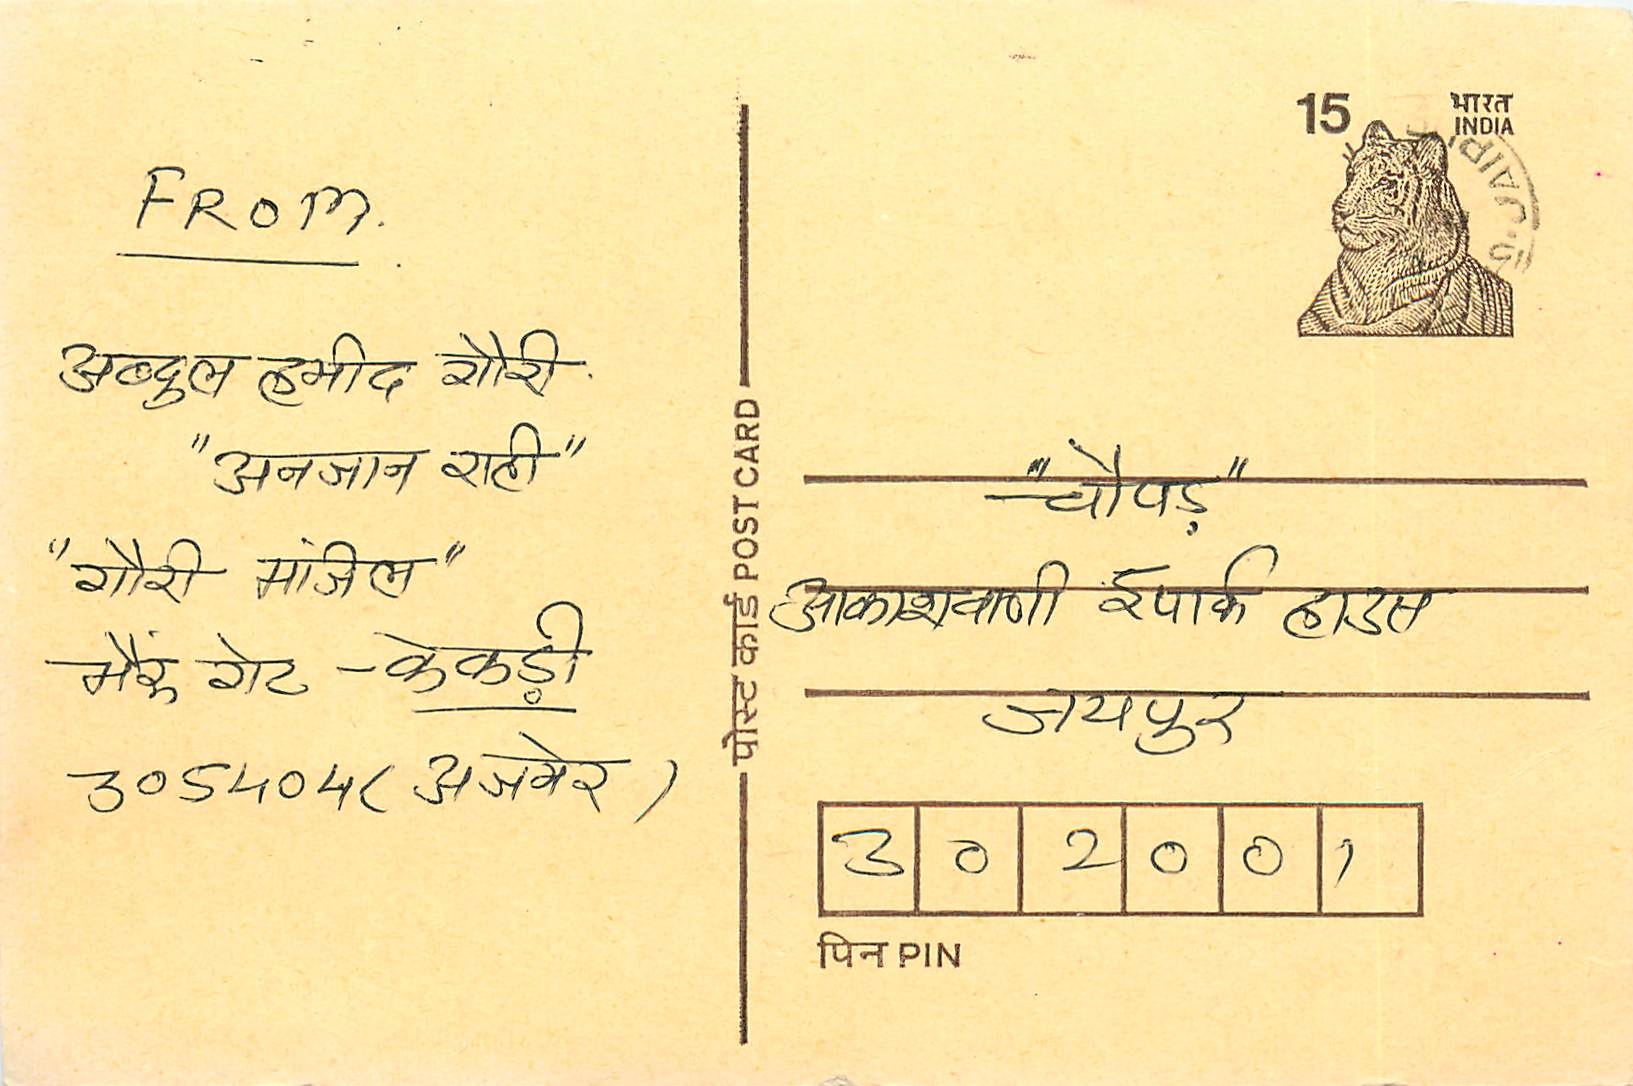 FROM.
अब्दुल हमीद गौरी
"अनजान राही"
"गौरी मंजिल"
भैरूं गेट - केकड़ी
305404 ( अजमेर )
पोस्ट कार्ड POST CARD
15
भारत
INDIA
"चौपड़"
आकाशवाणी ईपार्क हाउस
जयपुर
302001
पिन PIN